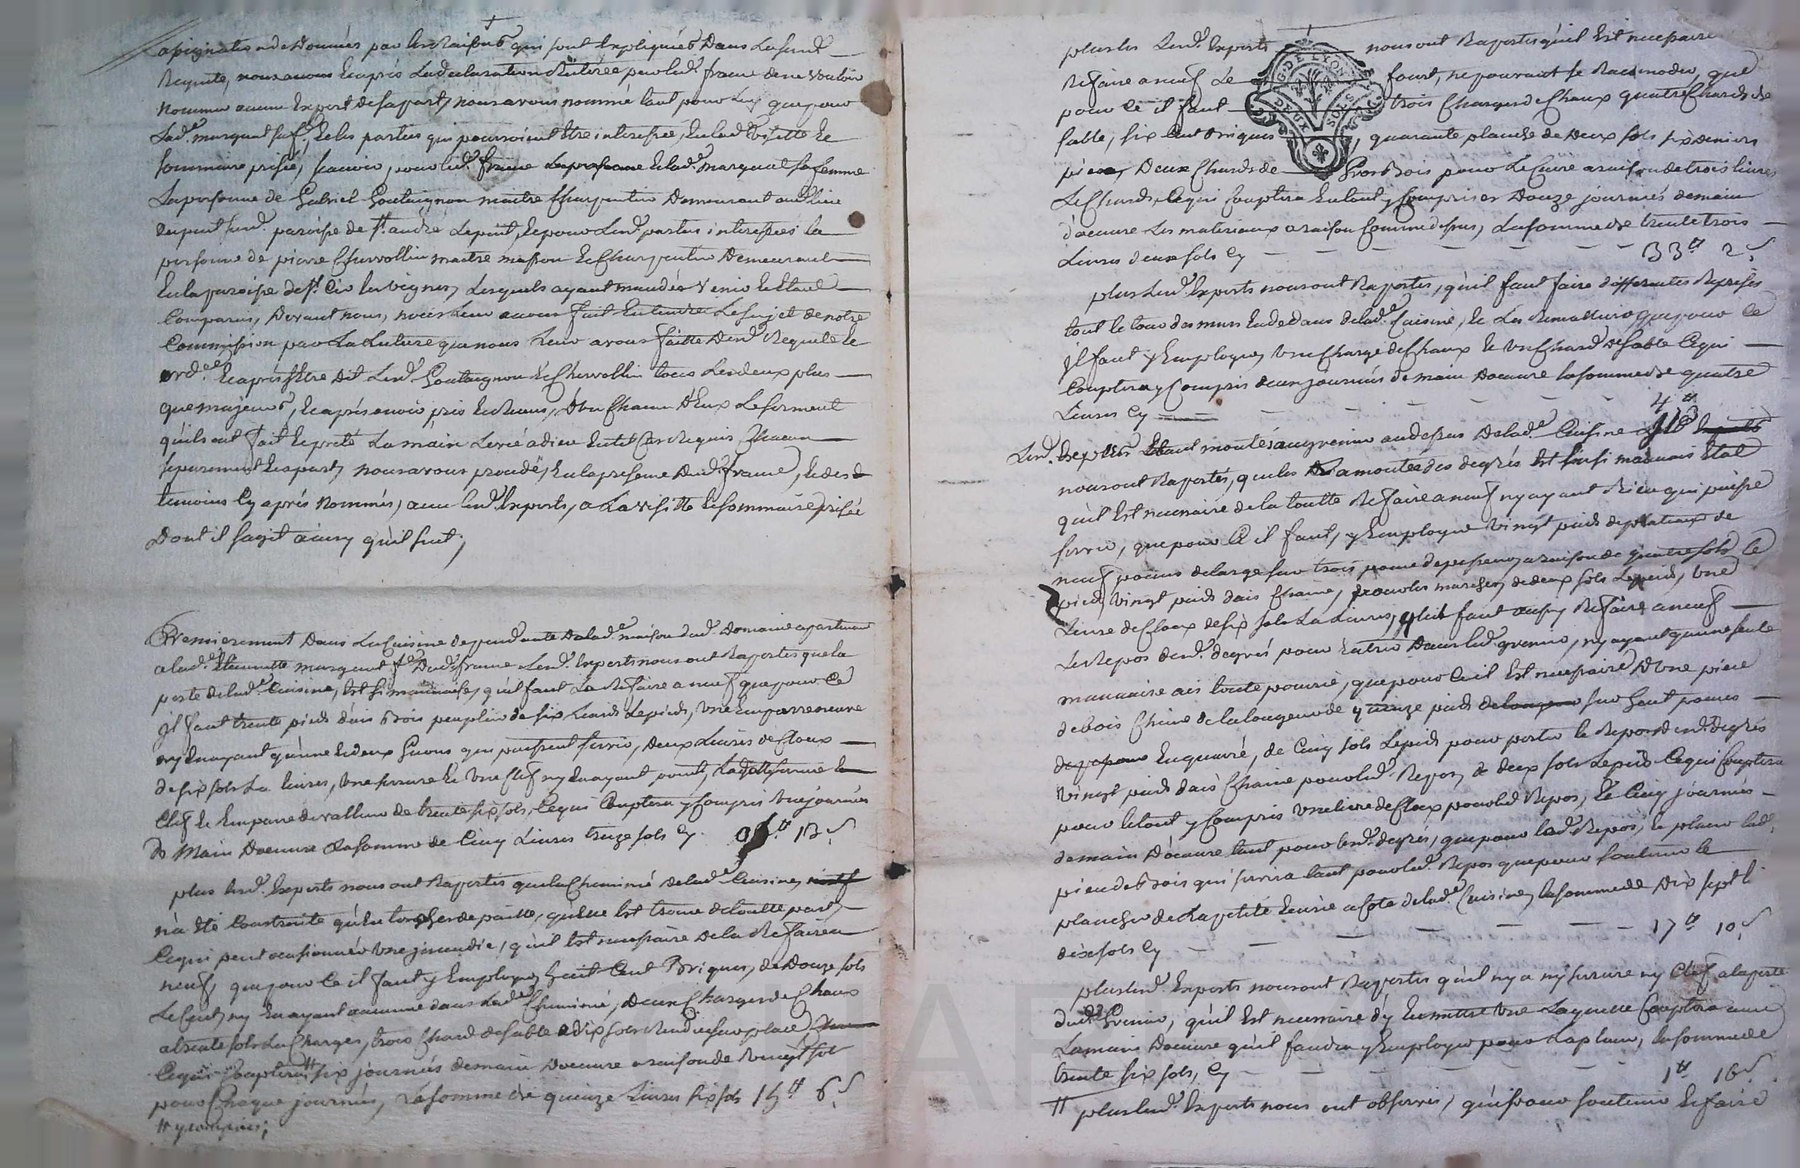 assignation a eux données par les raisons qui sont Expliquées Dans Lesusd.
Requete, nous avons Enaprés La declaration Réiterée par led. france de ne vouloir
nommer aucun Expert de sa part, nous avons nommé tant pour Luy que pour
Lad. marguent sa f. Et les parties qui pourroient Etre interessées, En lad. visitte Et
sommaire prisée, scavoir, pour led. france Et lad. marguent sa femme
La personne de Gabriel Goutaignon maitre Charpentier Demeurant au Lieu
Dupuit susd. paroisse de St. andré Lepuit, Et pour Lesd. parties interessées la
personne de pierre Chervollin maitre masson Et Charpentier Demeurant
En la paroisse de St. Cir les vignes, Lesquels ayant mandés venir Et Etant
Comparus, Devant nous, nous Leur avons fait Entendre Le sujet de notre
Commission par La Lecture que nous Leur avons faitte Desd. Requete Et
ord.ce Et aprés Etre Dit Lesd. Goutaignon Et Chervollin tous Les deux plus
que majeurs, Et aprés avoir pris Et Reçus, D'un Chacun D'Eux Le serment
qu'ils ont fait Et preté La main Levée a dieu En tel Cas Requis, Chacun
separement Et apart, nous avons procedé, En la presence Dud. france, Et des
temoins Cy aprés Nommés, avec Lesd. Experts, a La visitte Et sommaire prisée
Dont il s'agit ainsy qu'il suit,
Premierement Dans La Cuisine dependante De lad. maison dud. Domaine apartenant
a lad. Etiennette marguent f.e Dud. france, Lesd. Experts nous ont Raportés que la
porte de lad. Cuisine, Est si mauvaise, qu'il faut La Refaire a neuf que pour Ce
Il faut trente pieds d'ais Bois peuplier de six Liards Le pied, une Emparremeure
n'y En ayant qu'une Et deux Guons qui puissent servir, Deux Livres de Cloux
de six sols La livre, une serrure Et une Clef n'y En ayant point,
Clef Et Emparre de valleur de trente six sols, Ce qui Comptera y Compris une journée
De Main Doeuvre La somme de Cinq Livres treize sols Cy 05 ₶ 13 s
plus Lesd. Experts nous ont Raportés que la Cheminée de lad. Cuisine,
n'a Eté Construitte qu'En torches de paille, qu'Elle Est trouée de toutte part,
Ce qui peut ocasionner une jncendie, qu'il Est necessaire De la Refaire a
neuf, que pour Ce il faut y Employer huit Cent Briques, de Douze sols
Le Cent, n'y En ayant aucune dans lad. Cheminée, Deux Charges de Chaux
a trente sols La Charge, trois Chard de sable a dix sols Rendu sur place,
Ce qui Comptera # six journées de main Doeuvre a raison de vingt sol
pour Chaque journée, La somme de quinze Livres six sols 15 ₶ 6 s
# y compris;
plus les Lesd. Experts nous ont Raportés qu'il Est necessaire
Refaire a neuf Le four, ne pouvant se Racomoder, que
pour Ce il faut trois Charges de Chaux quatre Chards de
sable, six Cent briques, quarante planche de Deux sols six deniers
piece, Deux Chards de Gros Bois pour Le Cuire a raison de trois livres
Le Chard, Ce qui Comptera En tout y Compris Douze journées de main
d'oeuvre Les materiaux a raison Comme dessus, La somme de trente trois
Livres deux sols Cy 33 ₶ 2 s
G. DE LYON
DEUX SOLS
plus Lesd. Experts nous ont Raportés, qu'il faut faire differentes Reprises
tout le tour des murs En dedans de lad. Cuisine, Et Les que pour Ce
Il faut y Employer, une Charge de Chaux Et un Chard de sable Ce qui
Comptera y Compris deux journées de main Doeuvre La somme de quatre
Livres Cy 4 ₶
Lesd. Experts Etant montés au grenier au dessus De lad. Cuisine
nous ont Raportés, que les montée des degrés Est si mauvais Etat
qu'il Est necessaire de la toutte Refaire a neuf n'y ayant Rien qui puisse
servir, que pour Ce il faut, y Employer vingt pieds de plateaux de
neuf pouces de large sur trois pouce d'epesseur, a raison de quatre sols Le
pied, vingt pieds d'ais Chaine, pour les marches de deux sols Le pied, une
Livre de Cloux de six sols La Livre, qu'il faut aussy Refaire a neuf
Les Repos desd. degrés pour Entrer Dans led. grenier, n'y ayant qu'une seule
mauvaise ais toute pourrie, que pour Ce il Est necessaire D'une piece
de bois Chaine de la longeur de quinze pieds sur sept pouces
En quarré, de Cinq sols Le pied pour porter Le Repos desd. degrés
vingt pieds d'ais Chaine pour led. Repos, de deux sols Le pied Ce qui Comptera
pour le tout y Compris une livre de Cloux pour led. Repos, Et Cinq journées
de main D'oeuvre tant pour lesd. degrés, que pour led. Repos, Et placer lad.
piece de Bois qui servira tant pour led. Repos que pour soutenir Le
plancher de La petite Ecurie a Coté de lad. Cuisine, La somme de Dix sept l.
dix sols Cy 17 ₶ 10 s
plus Lesd. Experts nous ont Raportés qu'il n'y a ny serrure ny Clef a la porte
dud. Grenier, qu'il Est necessaire d'y En mettre une Laquelle Comptera avec
La main Doeuvre qu'il faudra y Employer pour La placer, La somme de
trente six sols, Cy 1 ₶ 16 s
# plus Lesd. Experts nous ont observés, qu'il faut soutenir Et faire